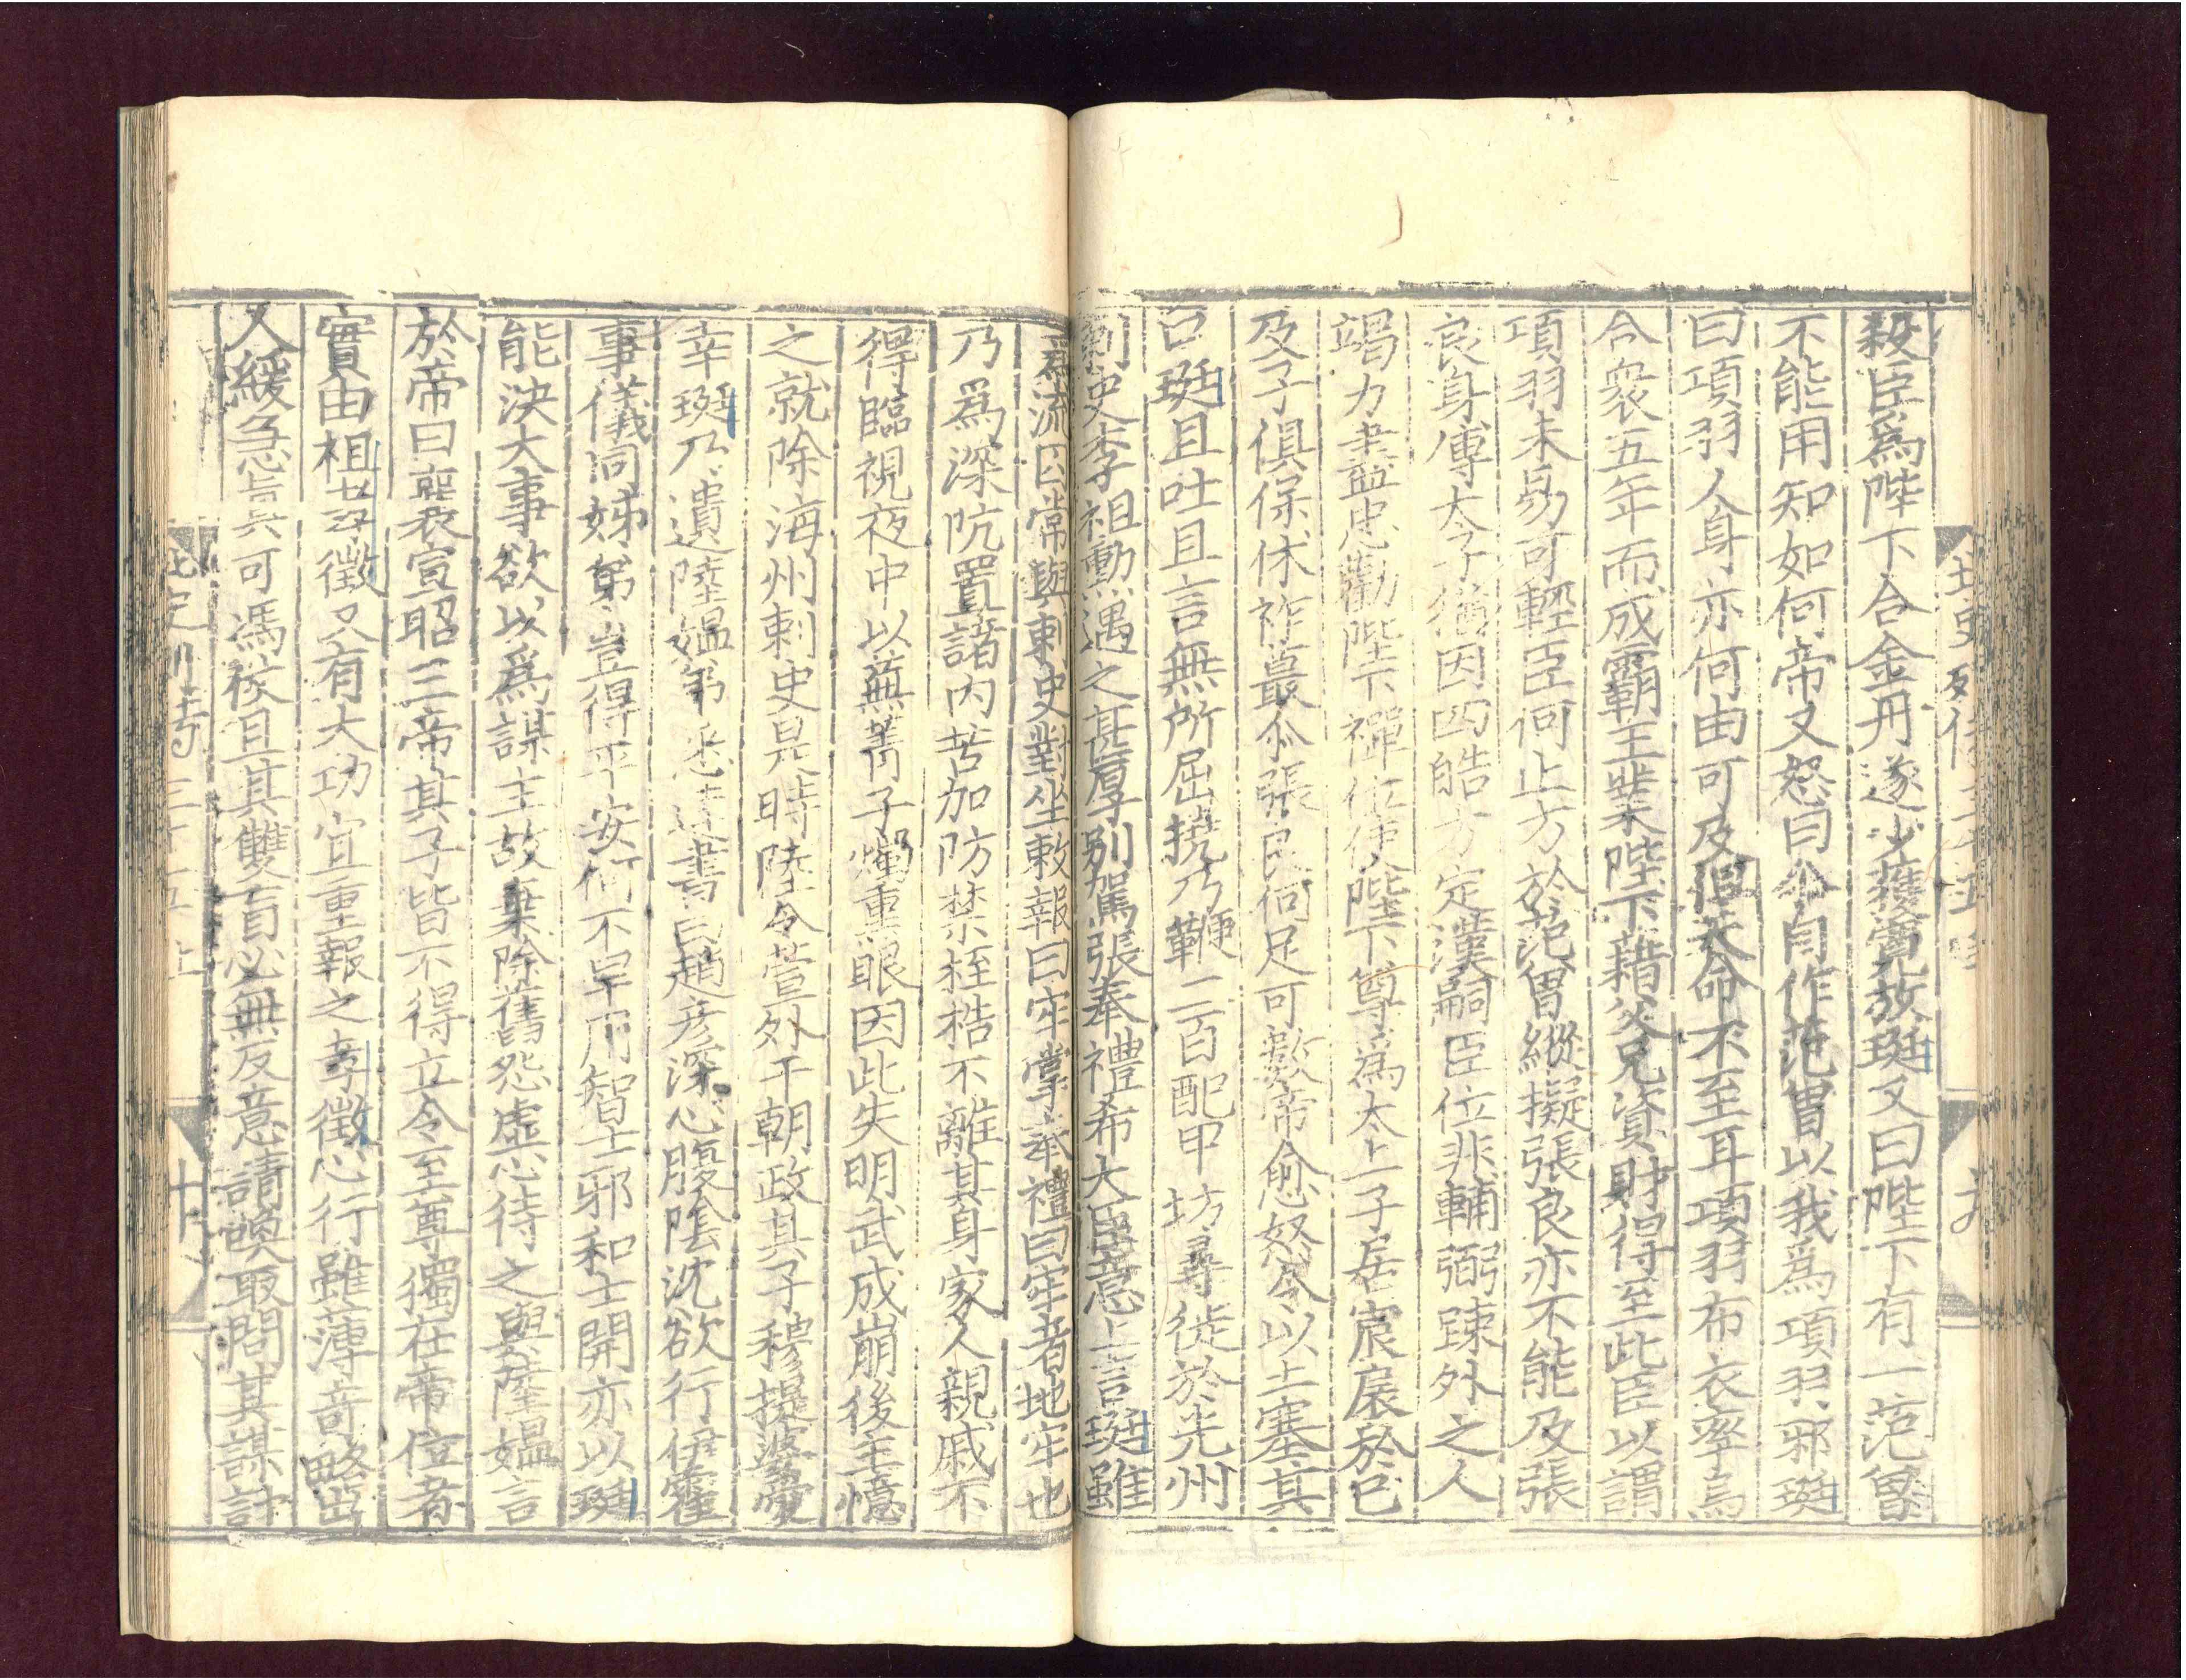 殺臣爲陛下合金丹遂少獲寬放珽又曰陛下有一范曾
不能用知如何帝又怒曰尒自作范曾以我爲項羽邪珽
曰項羽人身亦何由可及但天命不至耳項羽布衣率烏
合衆五年而成霸王業陛下藉父兄資財得至此臣以謂
項羽未易可輕臣何止方於范曾縱擬張良亦不能及張
良身傅太子猶因四皓方定漢嗣臣位非輔弼踈外之人
竭力盡忠勸陛下禪位使陛下尊爲太上子居宸扆於已
及子俱保休祚蕞尒張良何足可數帝愈怒令以土塞其
口珽且吐且言無所屈撓乃鞭二百配甲坊尋徙於光州
刺史李祖勳遇之甚厚別駕張奉禮希大臣意上言珽雖
爲流囚常與刺史對坐敕報曰牢掌奉禮曰牢者地牢也
乃爲深阬置諸內苦加防禁桎梏不離其身家人親戚不
得臨視夜中以蕪菁子燭熏眼因此失明武成崩後主憶
之就除海州刺史是時陸令萱外干朝政其子穆提婆愛
幸珽乃遺陸媼弟悉達書曰趙彦深心腹陰沈欲行伊霍
事儀同姊弟豈得平安何不早用智士邪和士開亦以珽
能決大事欲以爲謀主故棄除舊怨虛心待之與陸媼言
於帝曰襄宣昭三帝其子皆不得立令至尊獨在帝位者
實由祖孝徵又有大功宜重報之孝徵心行雖薄竒略出
人緩急眞可馮發且其雙盲必無反意請喚取問其謀計